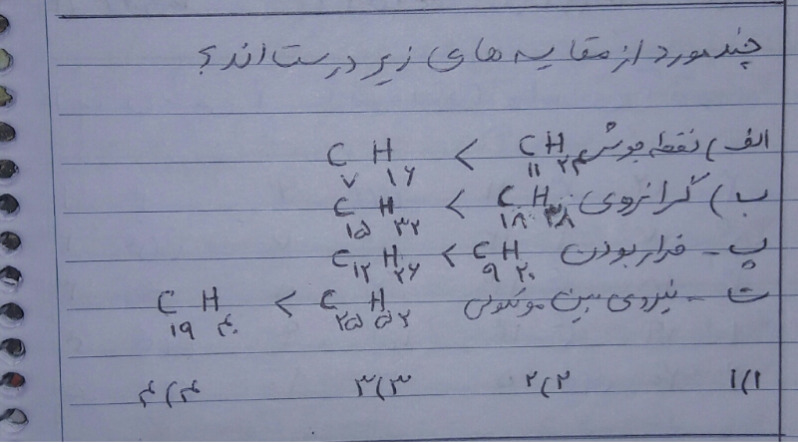 چند مورد از مقایسه های زیر درست اند؟
الف) نقطه جوش C₁₁H₂₄ > C₇H₁₶
ب) گرانروی C₁₈H₃₈ > C₁₅H₃₂
پ- فرار بودن C₉H₂₀ > C₁₲H₂₆
ت- نیروی بین مولکولی C₂₅H₅₂ > C₁₉H₄₀
۱)۱ ۲)۲ ۳)۳ ۴)۴